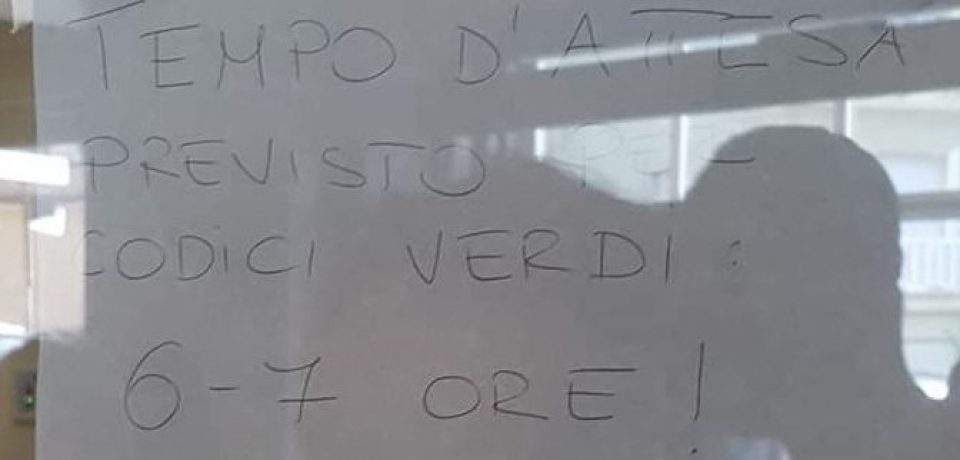 TEMPO D'ATTESA
PREVISTO PER
CODiCI VERDI :
6-7 ORE !